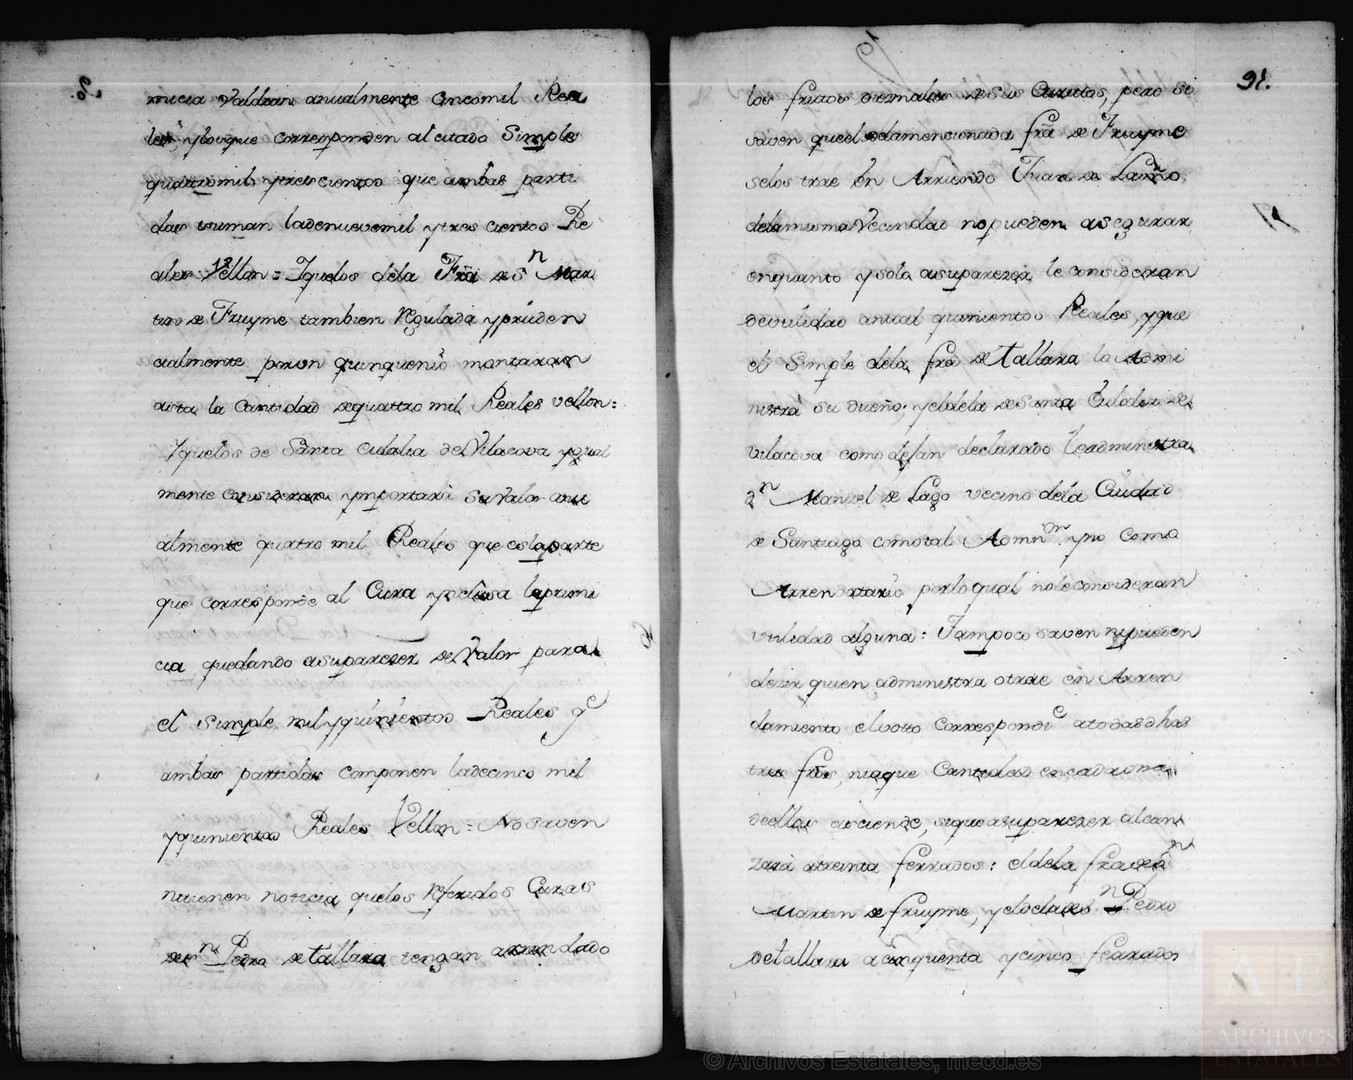 micia Valdran anualmente cincomil Rea
les yloque corresponden al citado Simple
quattromil ytrescientos que ambas parti
das suman ladenuevemil ytrescientos Re
ales Vellon = Yquelos dela Frã de Sn Mar
tin de Fruyme tambien Regulada yprûden
cialmente por un quinquenio montaran
asta la Cantidad de quattro mil Reales vellon:
Yquelos de Santa Eulalia de Vilacova ygual
mente considerara ymportará su Valor anu
almente quatro mil Reales que es la parte
que corresponde al Cura yreclusa la primi
cia quedando asuparezer de Valor para
el simple mil yquinientos Reales qe
ambas partidas componen ladecinco mil
yquinientos Reales Vellon = No saven
nitienen noticia quelos Referidos Curas
de Sn Pedro de tallara tengan arrendado
91.
los frutos diezmales de sus Curatos, pero si
saven que el dela mencionada frã de Fruyme
selos trae en Arriendo Juan da
dela misma Vecindad no pueden asegurar
en quanto y sola asuparezer le consideran
de utilidad anual quinientos Reales, yque
el Simple dela frã de tallara lo Admi
nistra su dueño; yel dela de Santa Eulalia de
vilacova como dejan declarado le administra
Dn Manuel de Lago vecino dela Ciudad
de Santiago como tal Admnor yno como
Arrendatario por lo qual no le consideran
utilidad alguna: Tampoco saven nipueden
dezir quien administra otrae en Arren
damiento el voto correspondte atodas dhas
tres frãs, niaque Cantidad encadauna
deellas asciende, sique asuparezer alcan
zará atreinta ferrados: eldela frã de Sn
Martin de fruyme, yelode Sn Pedro
detallara acinquenta ycinco ferrados
© Archivos Estatales, mecd.es
AE
ARCHIVOS
ESTATALES